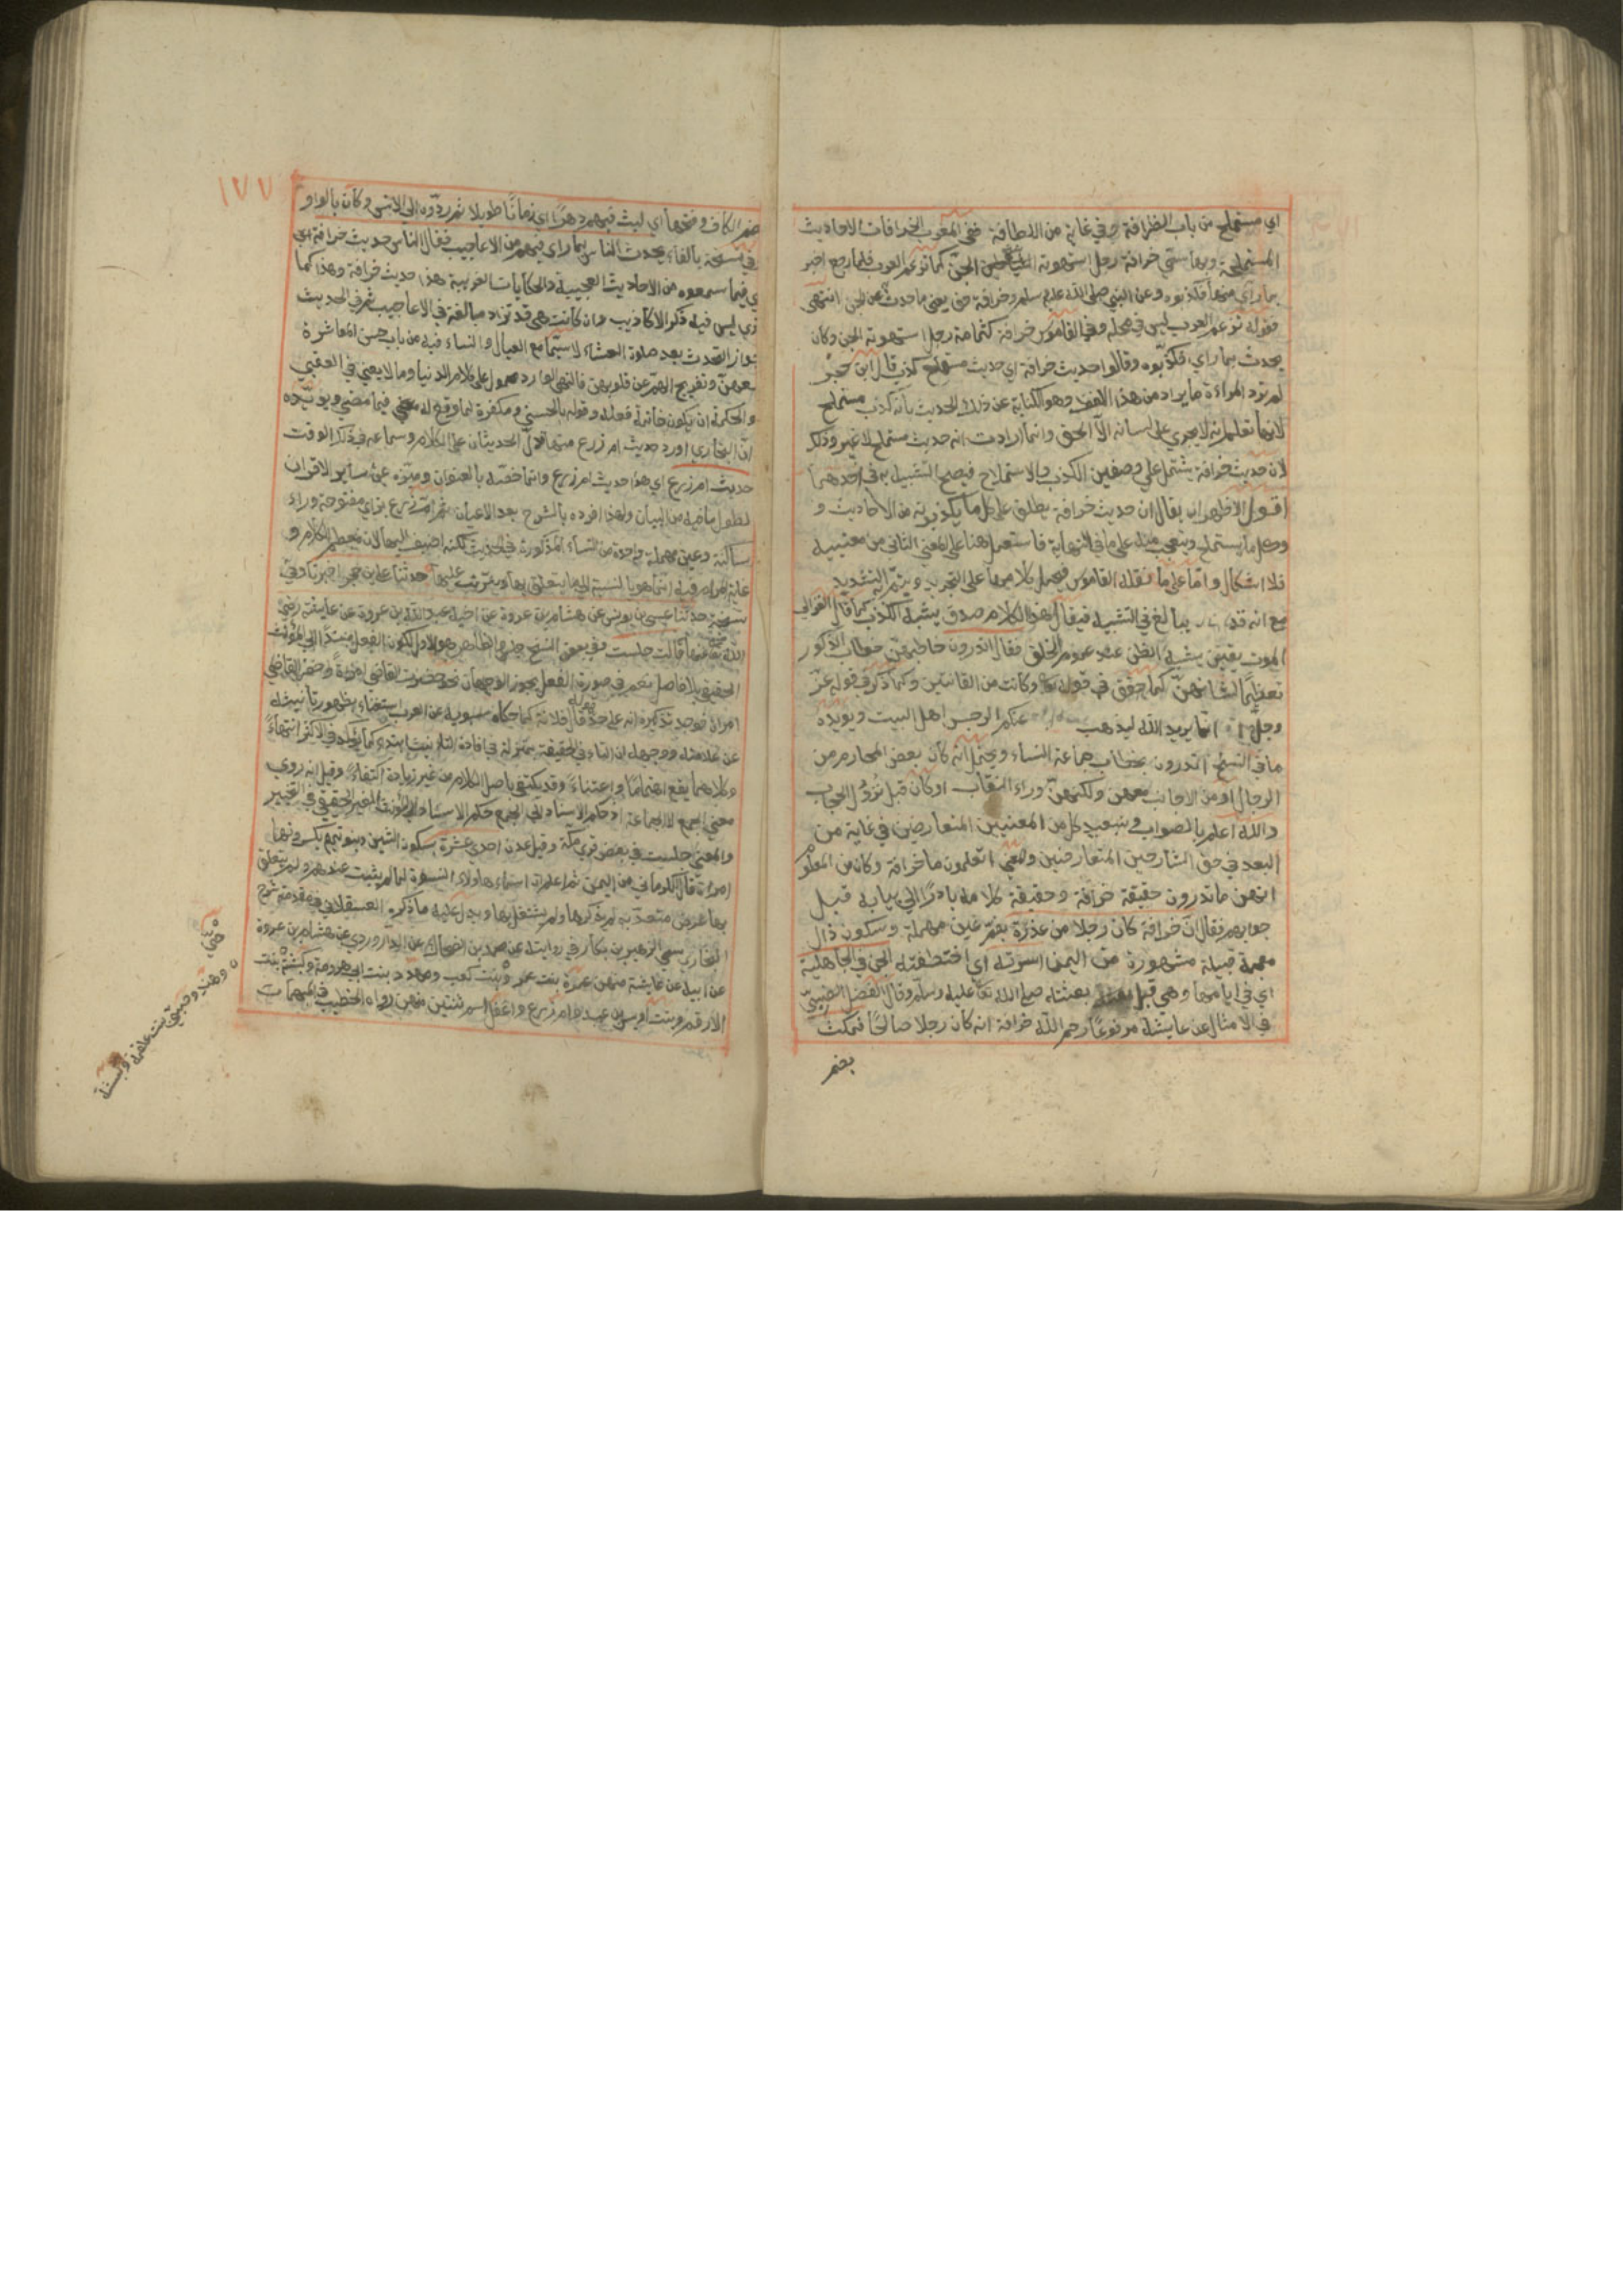 اي مستملح من باب الظرافة وفي غاية من اللطافة ففي المغرب الخرافات الاحاديث
المستملحة وبها سمي خرافة رجل استهوته الجن كما تزعم العرب فلما رجع اخبر
بما راى منها فكذبوه وعن النبي صلى الله عليه وسلم وخرافة حق يعني ما حدث عن الجن انتهى
فقوله تزعم العرب ليس في محله وفي القاموس خرافة كثمامة رجل استهوته الجن وكان
يحدث بما راي فكذبوه وقالوا حديث خرافة اي حديث مستملح كذب قال ابن حجر
لم ترد المراءة ما يراد من هذا اللفظ وهو الكناية عن ذلك الحديث بانه كذب مستملح
لانها تعلم انه لا يجري على لسانه الا الحق وانما ارادت انه حديث مستملح لا غير وذلك
لان حديث خرافة يشتمل على وصفين الكذب والاستملاح فيصح التشبيه به في احدهما
اقول الاظهر ان يقال ان حديث خرافة يطلق على كل ما يكذبونه من الاحاديث و
وكل ما يستملح ويتعجب منه على ما في النهاية فاستعمل هنا على المعنى الثاني من معنييه
فلا اشكال واما على ما نقله القاموس فيحمل كلامها على التجريد ويتم به التشديد
مع انه قد يبالغ في التشبيه فيقال هذا الكلام صدق يشبه الكذب كما قال الغزالي
الموت يقين يشبه الظن عند عموم الخلق فقال اتدرون خاطبهن خطاب الذكور
تعظيما لشانهن كما حقق في قوله تعالى وكانت من القانتين وكما ذكر في قوله عز
وجل انما يريد الله ليذهب عنكم الرجس اهل البيت ويويده
ما في النسخ اتدرون بخطاب جماعة النساء ويحتمل انه كان بعض المحارم من
الرجال او من الاجانب معهن ولكنهن وراء النقاب او كان قبل نزول الحجاب
والله اعلم بالصواب وتبعيد كل من المعنيين المتعارضين في غاية من
البعد في حق الشارحين المتعارضين ومعنى اتعلمون ما خرافة وكان من المعلوم
انهن ما تدرون حقيقة خرافة وحقيقة كلامه بادر الى بيانه قبل
جوابهم فقال ان خرافة كان رجلا من عذرة بضم عين مهملة وسكون ذال
معجمة قبيلة مشهورة من اليمن اسرته اي اختطفته الجن في الجاهلية
اي في ايامها وهي قبل بعثته صلى الله تعا عليه وسلم وقال الفضل الضبي
في الامثال عن عايشة مرفوعا رحم الله خرافة انه كان رجلا صالحا فمكث
بضم
١٧٧
ضم الكاف وفتحها اي لبث فيهم دهرا اي زمانا طويلا ثم ردوه الى الانس وكان بالواو
في نسخة بالفاء يحدث الناس بما راى فيهم من الاعاجيب فقال الناس حديث خرافة اي
ي فيما سمعوه من الاحاديث العجيبة والحكايات الغريبة هذا حديث خرافة وهذا كما
ترى ليس فيه ذكر الاكاذيب وان كانت هي قد تراد مبالغة في الاعاجيب ثم في الحديث
جواز التحدث بعد صلوة العشاء لا سيما مع العيال والنساء فانه من باب حسن المعاشرة
معهن وتفريج الهم عن قلوبهن فالنهي الوارد محمول على كلام الدنيا وما لا يعني في العقبى
والحكمة ان يكون خاتمة فعله وقوله بالحسنى ومكفرة لما وقع له فيما مضى ويويده
ان البخاري اورد حديث ام زرع الحديثان على الكلام وسماعه في ذلك الوقت
حديث ام زرع اي هذا حديث ام زرع وانما خصه بالعنوان وميزه عن ساير الاقران
لطول ما فيه من البيان ولهذا افرده بالشرح بعد الاعيان ثم ام زرع بزاي مفتوحة وراء
ساكنة وعين مهملة واحدة من النساء المذكورة في الحديث لكنه اضيف اليها لان معظم الكلام و
غاية المرام فيه انما هو بالنسبة اليها يتعلق بها ويترتب عليها حدثنا علي بن حجر اخبرنا وفي
نسخة حدثنا عيسى بن يونس عن هشام بن عروة عن اخيه عبد الله بن عروة عن عايشة رضي
الله تعا عنها قالت جلست وفي بعض النسخ جلس والظاهر هو الاول لكون الفعل مسندا الى المؤنث
الحقيقي بلا فاصل نعم في صورة الفصل يجوز الوجهان نحو حضرت القاضي امرأة وحضر القاضي
امراة فوجه تذكيره انه على حد قال فلانة كما حكاه سيبويه عن العرب استغناء بظهور تانيثه
عن علامته ووجهه ان التاء في الحقيقة بمنزلة في افادة التانيث
وكلاهما يقع اهتماما واعتناء وقد يكتفى باصل الكلام من غير زيادة اكتفاء وقيل انه روي
معنى الجمع لا الجماعة اذ حكم الاسناد الى الجمع حكم الاسناد الى المؤنث الغير الحقيقي في التخيير
والمعنى جلست في بعض قرى مكة وقيل عدن احدى عشرة بسكون الشين وبنو تميم بكسرونها
امراة قال الكرماني من اليمن ثم اعلم ان اسماء هاولاء النسوة لما لم يثبت عندهم ولم يتعلق
بها غرض متعد به لم يذكرها ولم يشتغل بها ويدل عليه ما ذكره العسقلاني في مقدمة شرح
البخاري سمي الزبير بن بكار في روايته عن محمد بن الضحاك عن الدراوردي عن هشام بن عروة
عن ابيه عن عايشة منهن عمرة بنت عمرو وبنت كعب ومهدد بنت ابي هرومة وكبشة بنت
الارقم وبنت اوس بن عبد وام زرع واغفل اسم ثنتين منهن رواه الخطيب في المبهمات
حيى
وهند وحبى بنت علقمة وكبشة